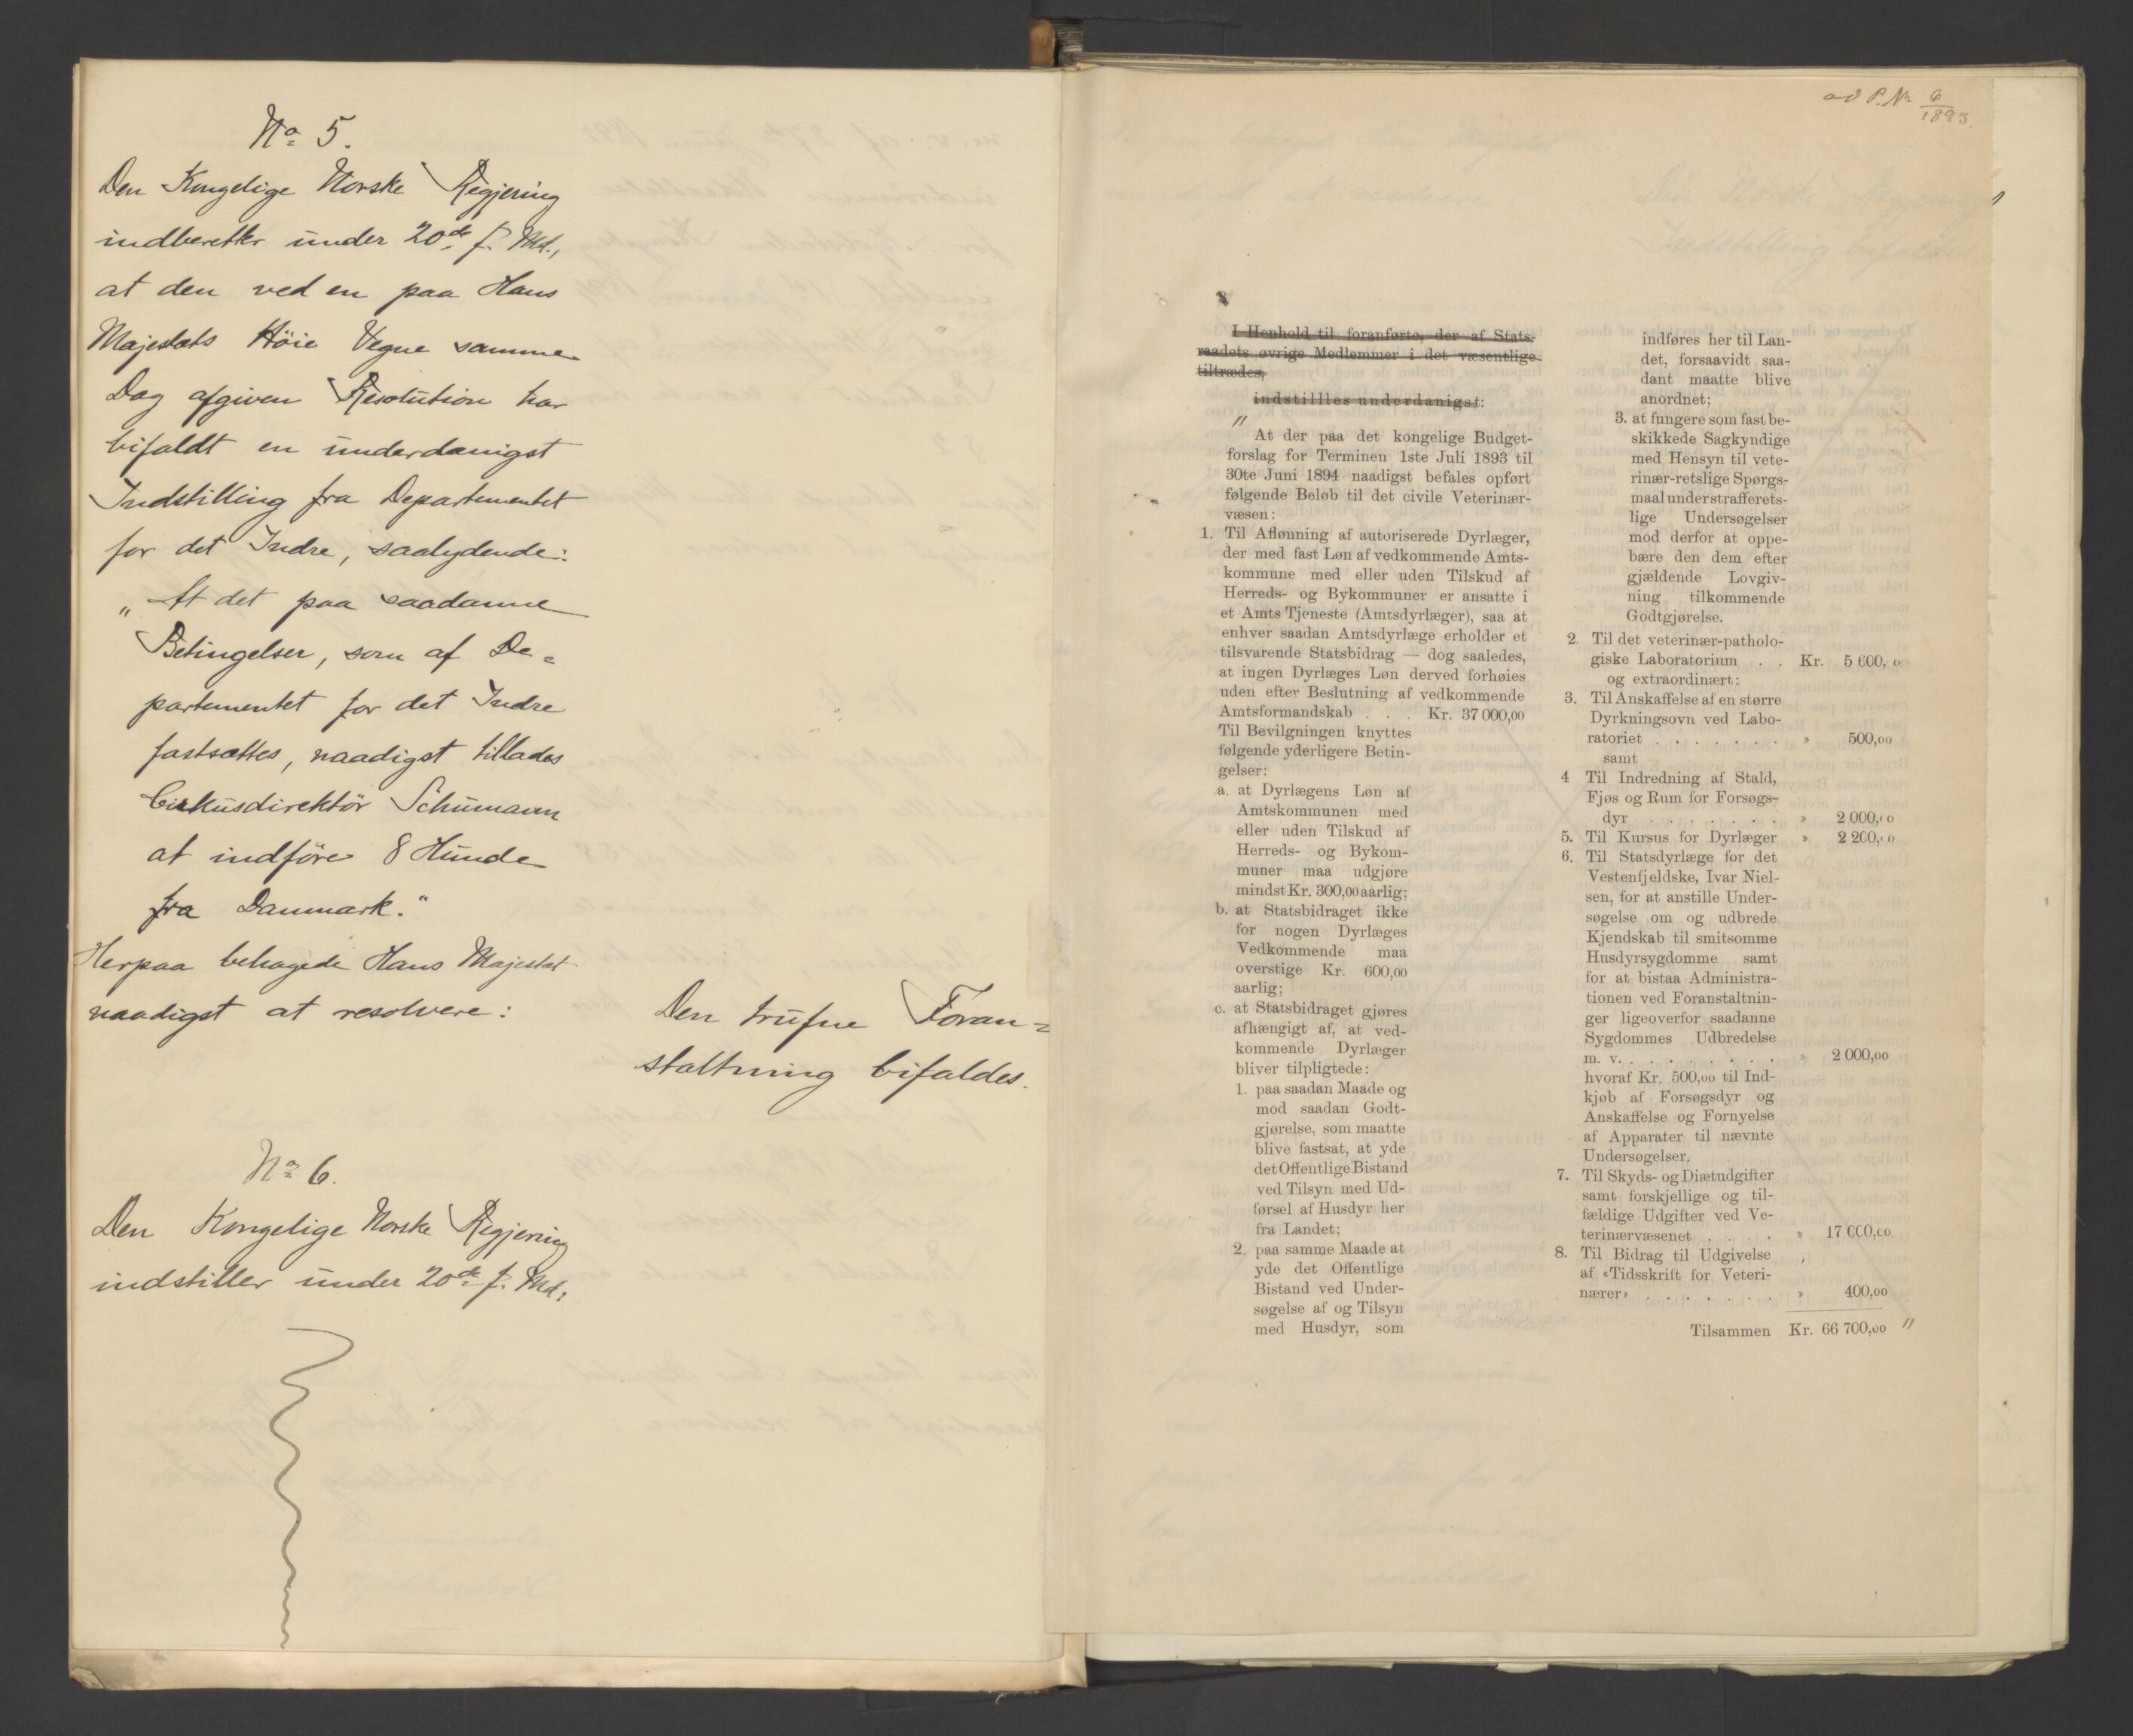 No 5.
Den Kongelige Norske Regjering
indberetter under 20de f. Md.,
at den ved en paa Hans
Majestæts Høie Vegne samme
Dag afgiven Resolution har
bifaldt en underdanigst
Indstilling fra Departementet
for det Indre, saalydende:
„At det paa saadanne
Betingelser, som af De=
partementet for det Indre
fastsættes, naadigst tillades
Cirkusdirektör Schumann
at indføre 8 Hunde
fra Danmark."
Herpaa behagede Hans Majestæt
naadigst at resolvere:
Den trufne Foran=
staltning bifaldes.
No 6.
Den Kongelige Norske Regjering
indstiller under 20de f. Md.:
ad P. No 6/1893.
I Henhold til foranførte, der af Stats-
raadets øvrige Medlemmer i det væsentlige
tiltrædes,
indstillles underdanigst:
"
At der paa det kongelige Budget-
forslag for Terminen 1ste Juli 1893 til
30te Juni 1894 naadigst befales opført
følgende Beløb til det civile Veterinær-
væsen:
1. Til Aflønning af autoriserede Dyrlæger,
der med fast Løn af vedkommende Amts-
kommune med eller uden Tilskud af
Herreds- og Bykommuner er ansatte i
et Amts Tjeneste (Amtsdyrlæger), saa at
enhver saadan Amtsdyrlæge erholder et
tilsvarende Statsbidrag — dog saaledes,
at ingen Dyrlæges Løn derved forhøies
uden efter Beslutning af vedkommende
Amtsformandskab . . . Kr. 37 000,00
Til Bevilgningen knyttes
følgende yderligere Betin-
gelser:
a. at Dyrlægens Løn af
Amtskommunen med
eller uden Tilskud af
Herreds- og Bykom-
muner maa udgjøre
mindst Kr. 300,00 aarlig;
b. at Statsbidraget ikke
for nogen Dyrlæges
Vedkommende maa
overstige Kr. 600,00
aarlig;
c. at Statsbidraget gjøres
afhængigt af, at ved-
kommende Dyrlæger
bliver tilpligtede:
1. paa saadan Maade og
mod saadan Godt-
gjørelse, som maatte
blive fastsat, at yde
det Offentlige Bistand
ved Tilsyn med Ud-
førsel af Husdyr her
fra Landet;
2. paa samme Maade at
yde det Offentlige
Bistand ved Under-
søgelse af og Tilsyn
med Husdyr, som
indføres her til Lan-
det, forsaavidt saa-
dant maatte blive
anordnet;
3. at fungere som fast be-
skikkede Sagkyndige
med Hensyn til vete-
rinær-retslige Spørgs-
maal under strafferets-
lige Undersøgelser
mod derfor at oppe-
bære den dem efter
gjældende Lovgiv-
ning tilkommende
Godtgjørelse.
2. Til det veterinær-patholo-
giske Laboratorium . . Kr. 5 600,00
og extraordinært:
3. Til Anskaffelse af en større
Dyrkningsovn ved Labo-
ratoriet . . . . . . . » 500,00
samt
4 Til Indredning af Stald,
Fjøs og Rum for Forsøgs-
dyr . . . . . . . » 2 000,00
5. Til Kursus for Dyrlæger » 2 200,00
6. Til Statsdyrlæge for det
Vestenfjeldske, Ivar Niel-
sen, for at anstille Under-
søgelse om og udbrede
Kjendskab til smitsomme
Husdyrsygdomme samt
for at bistaa Administra-
tionen ved Foranstaltnin-
ger ligeoverfor saadanne
Sygdommes Udbredelse
m. v. . . . . . . . . » 2 000,00
hvoraf Kr. 500,00 til Ind-
kjøb af Forsøgsdyr og
Anskaffelse og Fornyelse
af Apparater til nævnte
Undersøgelser.
7. Til Skyds- og Diætudgifter
samt forskjellige og til-
fældige Udgifter ved Ve-
terinærvæsenet . . . . » 17 000,00
8. Til Bidrag til Udgivelse
af «Tidsskrift for Veteri-
nærer» . . . . . . . » 400,00
Tilsammen Kr. 66 700,00 "